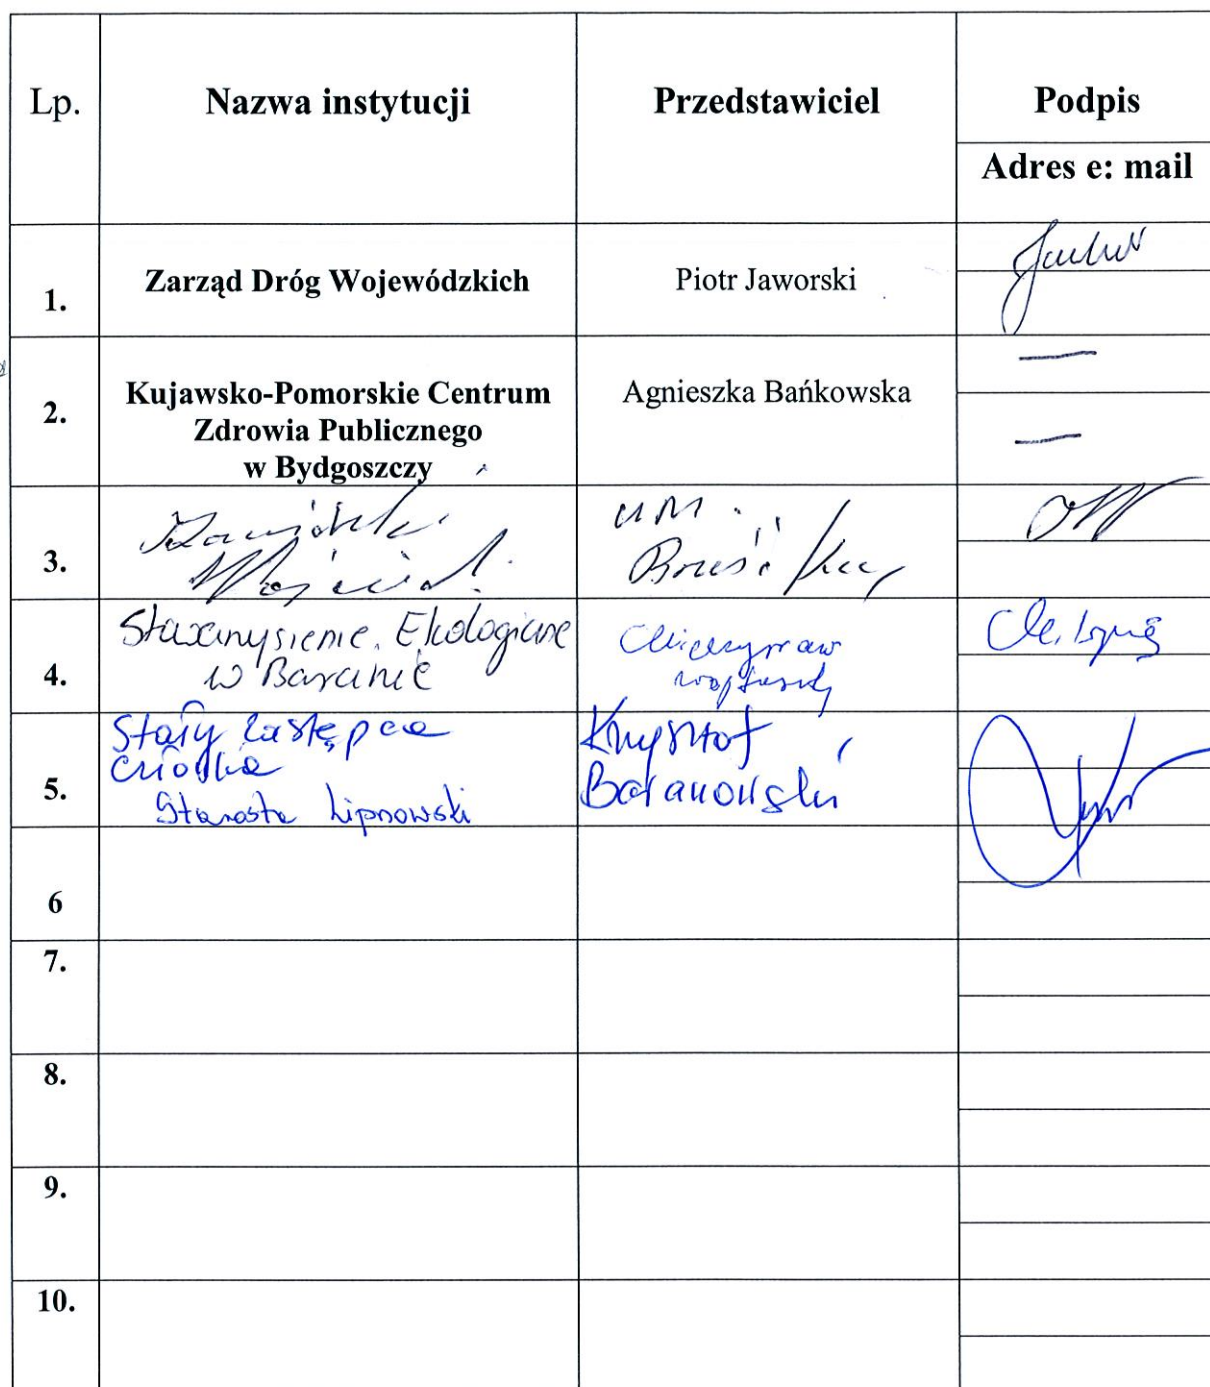 Lp.
Nazwa instytucji
Przedstawiciel
Podpis
Adres e: mail
1.
Zarząd Dróg Wojewódzkich
Piotr Jaworski
2.
Kujawsko-Pomorskie Centrum
Zdrowia Publicznego
w Bydgoszczy
Agnieszka Bańkowska
3.
UM
4.
Stowarzyszenie Ekologiczne
w
5.
Stały zastępca
członka
Starosta Lipnowski
Krzysztof
Baranowski
6
7.
8.
9.
10.